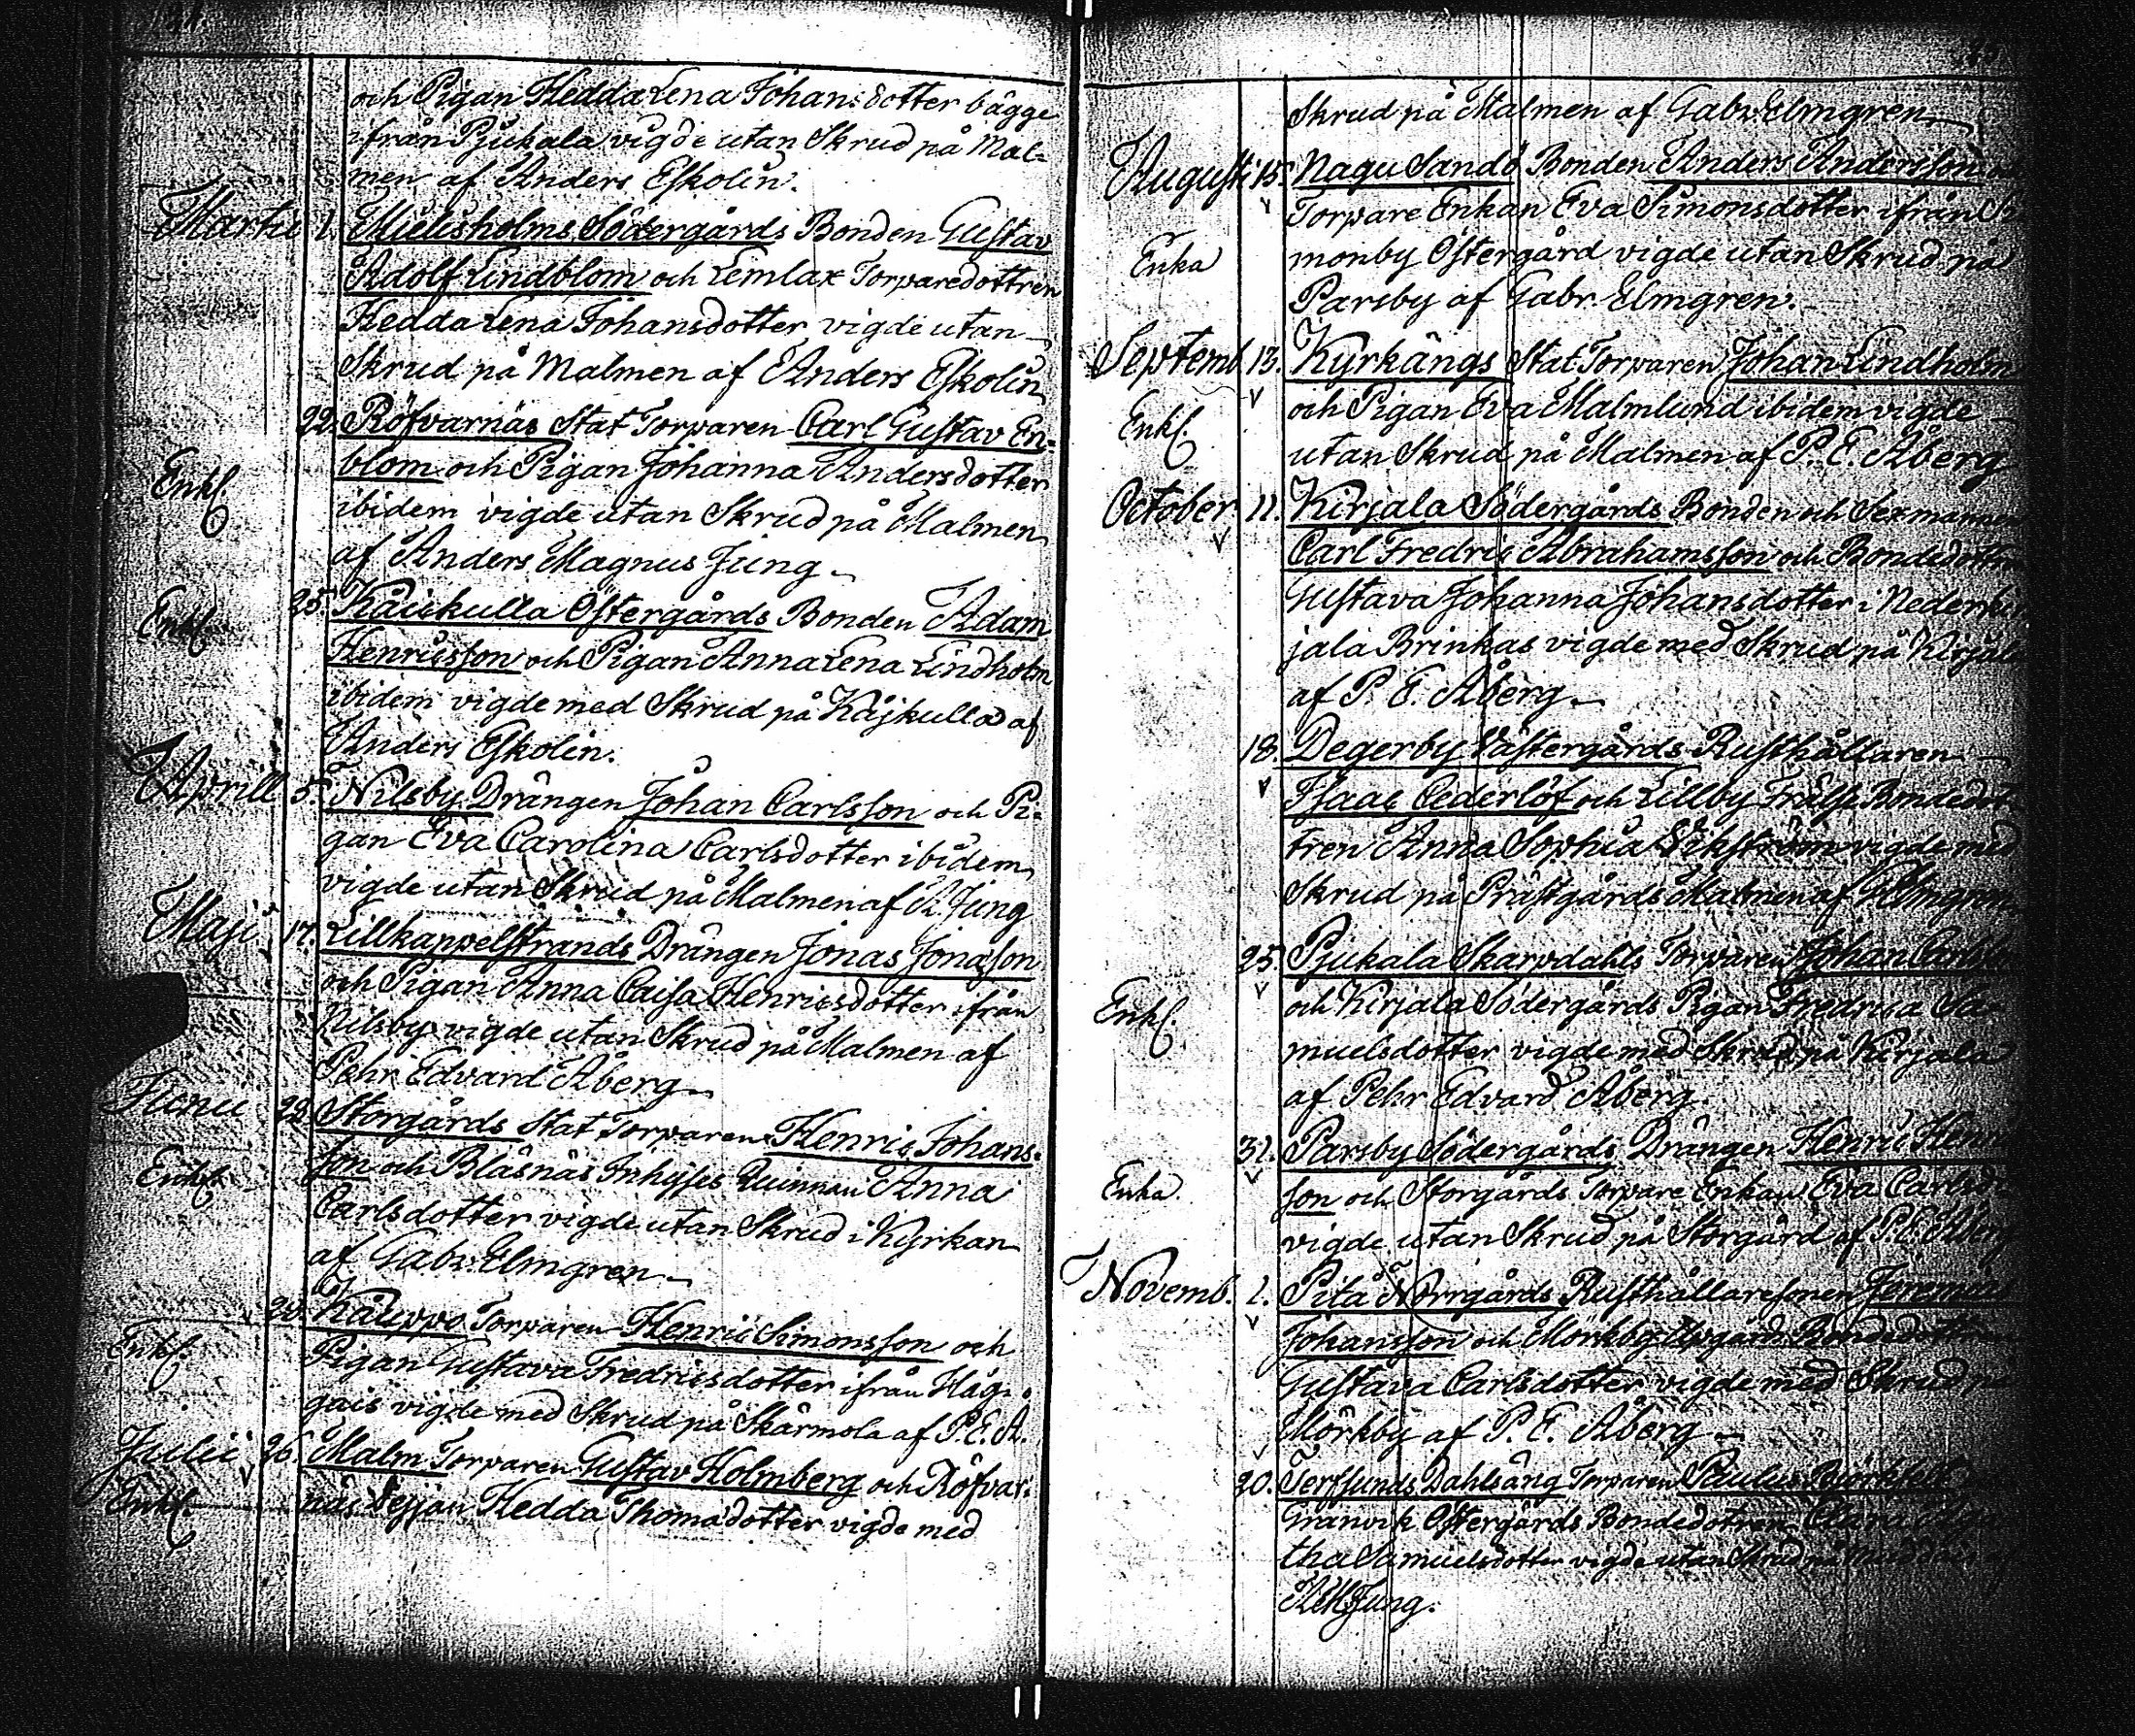 och Pigan Hedda Lena Johansdotter bägge
ifrån Pjukala vigde utan Skrud på Mal-
men af Anders Eskolin.
Martii 1. Mielisholms Södergårds Bonden Gustav
Adolf Lindblom och Lemlax Torparedottren
Hedda Lena Johansdotter vigde utan
Skrud på Malmen af Anders Eskolin
22. Röfvarnäs Stat Torparen Carl Gustav En-
Enkl. blom och Pigan Johanna Andersdotter
ibidem vigde utan Skrud på Malmen
af Anders Magnus Jung
Enkl. 25. Kåickulla Östergårds Bonden Adam
Henricsson och Pigan Anna Lena Lindholm
ibidem vigde med Skrud på Kåjkulla af
Anders Eskolin.
Aprill 5. Nilsby Drängen Johan Carlsson och Pi-
gan Eva Carolina Carlsdotter ibidem
vigde utan Skrud på Malmen af A. Jung
Maji 17. Lillkappelstrands Drängen Jonas Jonasson
och Pigan Anna Caisa Henricsdotter ifrån
Nilsby vigde utan Skrud på Malmen af
Pehr Edvard Åberg
Junii 22. Storgårds Stat Torparen Henric Johans-
Enkl. son och Bläsnäs Inhyses Quinnan Anna
Carlsdotter vigde utan Skrud i Kyrkan
af Gabr. Elmgren
Torparen Henric Simonsson och
Enkl. Pigan Gustava Fredricsdotter ifrån Häg-
gais vigde med Skrud på Skärmola af P. E. Å.
Julii 26. Malm Torparen Gustav Holmberg och Röfvar-
Enkl. näs Dejjan Hedda Thomadotter vigde med
Skrud på Malmen af Gabr. Elmgren
Augusti 15. Nagu Sandö Bonden Anders Andersson
Torpare Enkan Eva Simonsdotter ifrån
Enka monby Östergård vigde utan Skrud på
Parsby af Gabr. Elmgren.
Septemb. 13. Kyrkängs Stat Torparen Johan Lindholm
Enkl. och Pigan Eva Malmlund ibidem vigde
utan Skrud på Malmen af P. E. Åberg
October 11. Kirjala Södergårds Bonden och Sexmannen
Carl Fredric Abrahamsson och Bondedottren
Gustava Johanna Johansdotter i Nederkir
jala Brinkas vigde med Skrud på Kirjala
af P. E. Åberg
18. Degerby Västergårds Rusthållaren
Isaac Cederlöf och Lillby Frälse Bondedot
tren Anna Sophia Vikström vigde med
Skrud på Prästgårds Malmen af Elmgren
25. Pjukala Skarpdahls Torparen Johan Carlsson
Enkl. och Kirjala Södergårds Pigan Fredrica Sa-
muelsdotter vigde med Skrud på Kirjala
af Pehr Edvard Åberg.
31. Parsby Södergårds Drängen Henric Hen
Enka. son och Storgårds Torpare Enkan Eva Carlsd
vigde utan Skrud på Storgård af P. E. Åberg
Novemb. 1. Pitå Norrgårds Rusthållaresonen Jeremias
Johansson och Mörkby Uppgård Bondedottren
Gustava Carlsdotter vigde med Skrud på
Mörkby af P. E. Åberg
20. Terfsunds Dahlsäng Torparen Paulus
Granvik Östergårds Bondedotren Clara Aga
tha Samuelsdotter vigde utan Skrud på
Jung.